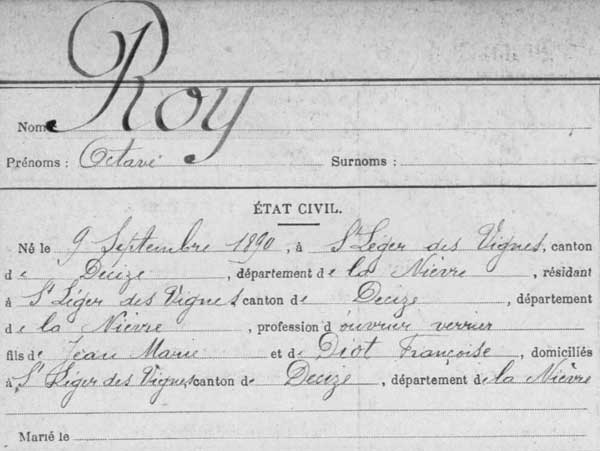 Roy
Nom
Prénoms : Octave Surnoms :
ÉTAT CIVIL.
Né le 9 Septembre 1890, à St Léger des Vignes, canton
de Decize, département de la Nièvre, résidant
à St Léger des Vignes canton de Decize, département
de la Nièvre, profession d'ouvrier verrier
fils de Jean Marie et de Diot Françoise, domiciliés
à St Léger des Vignes, canton de Decize, département de la Nièvre
Marié le